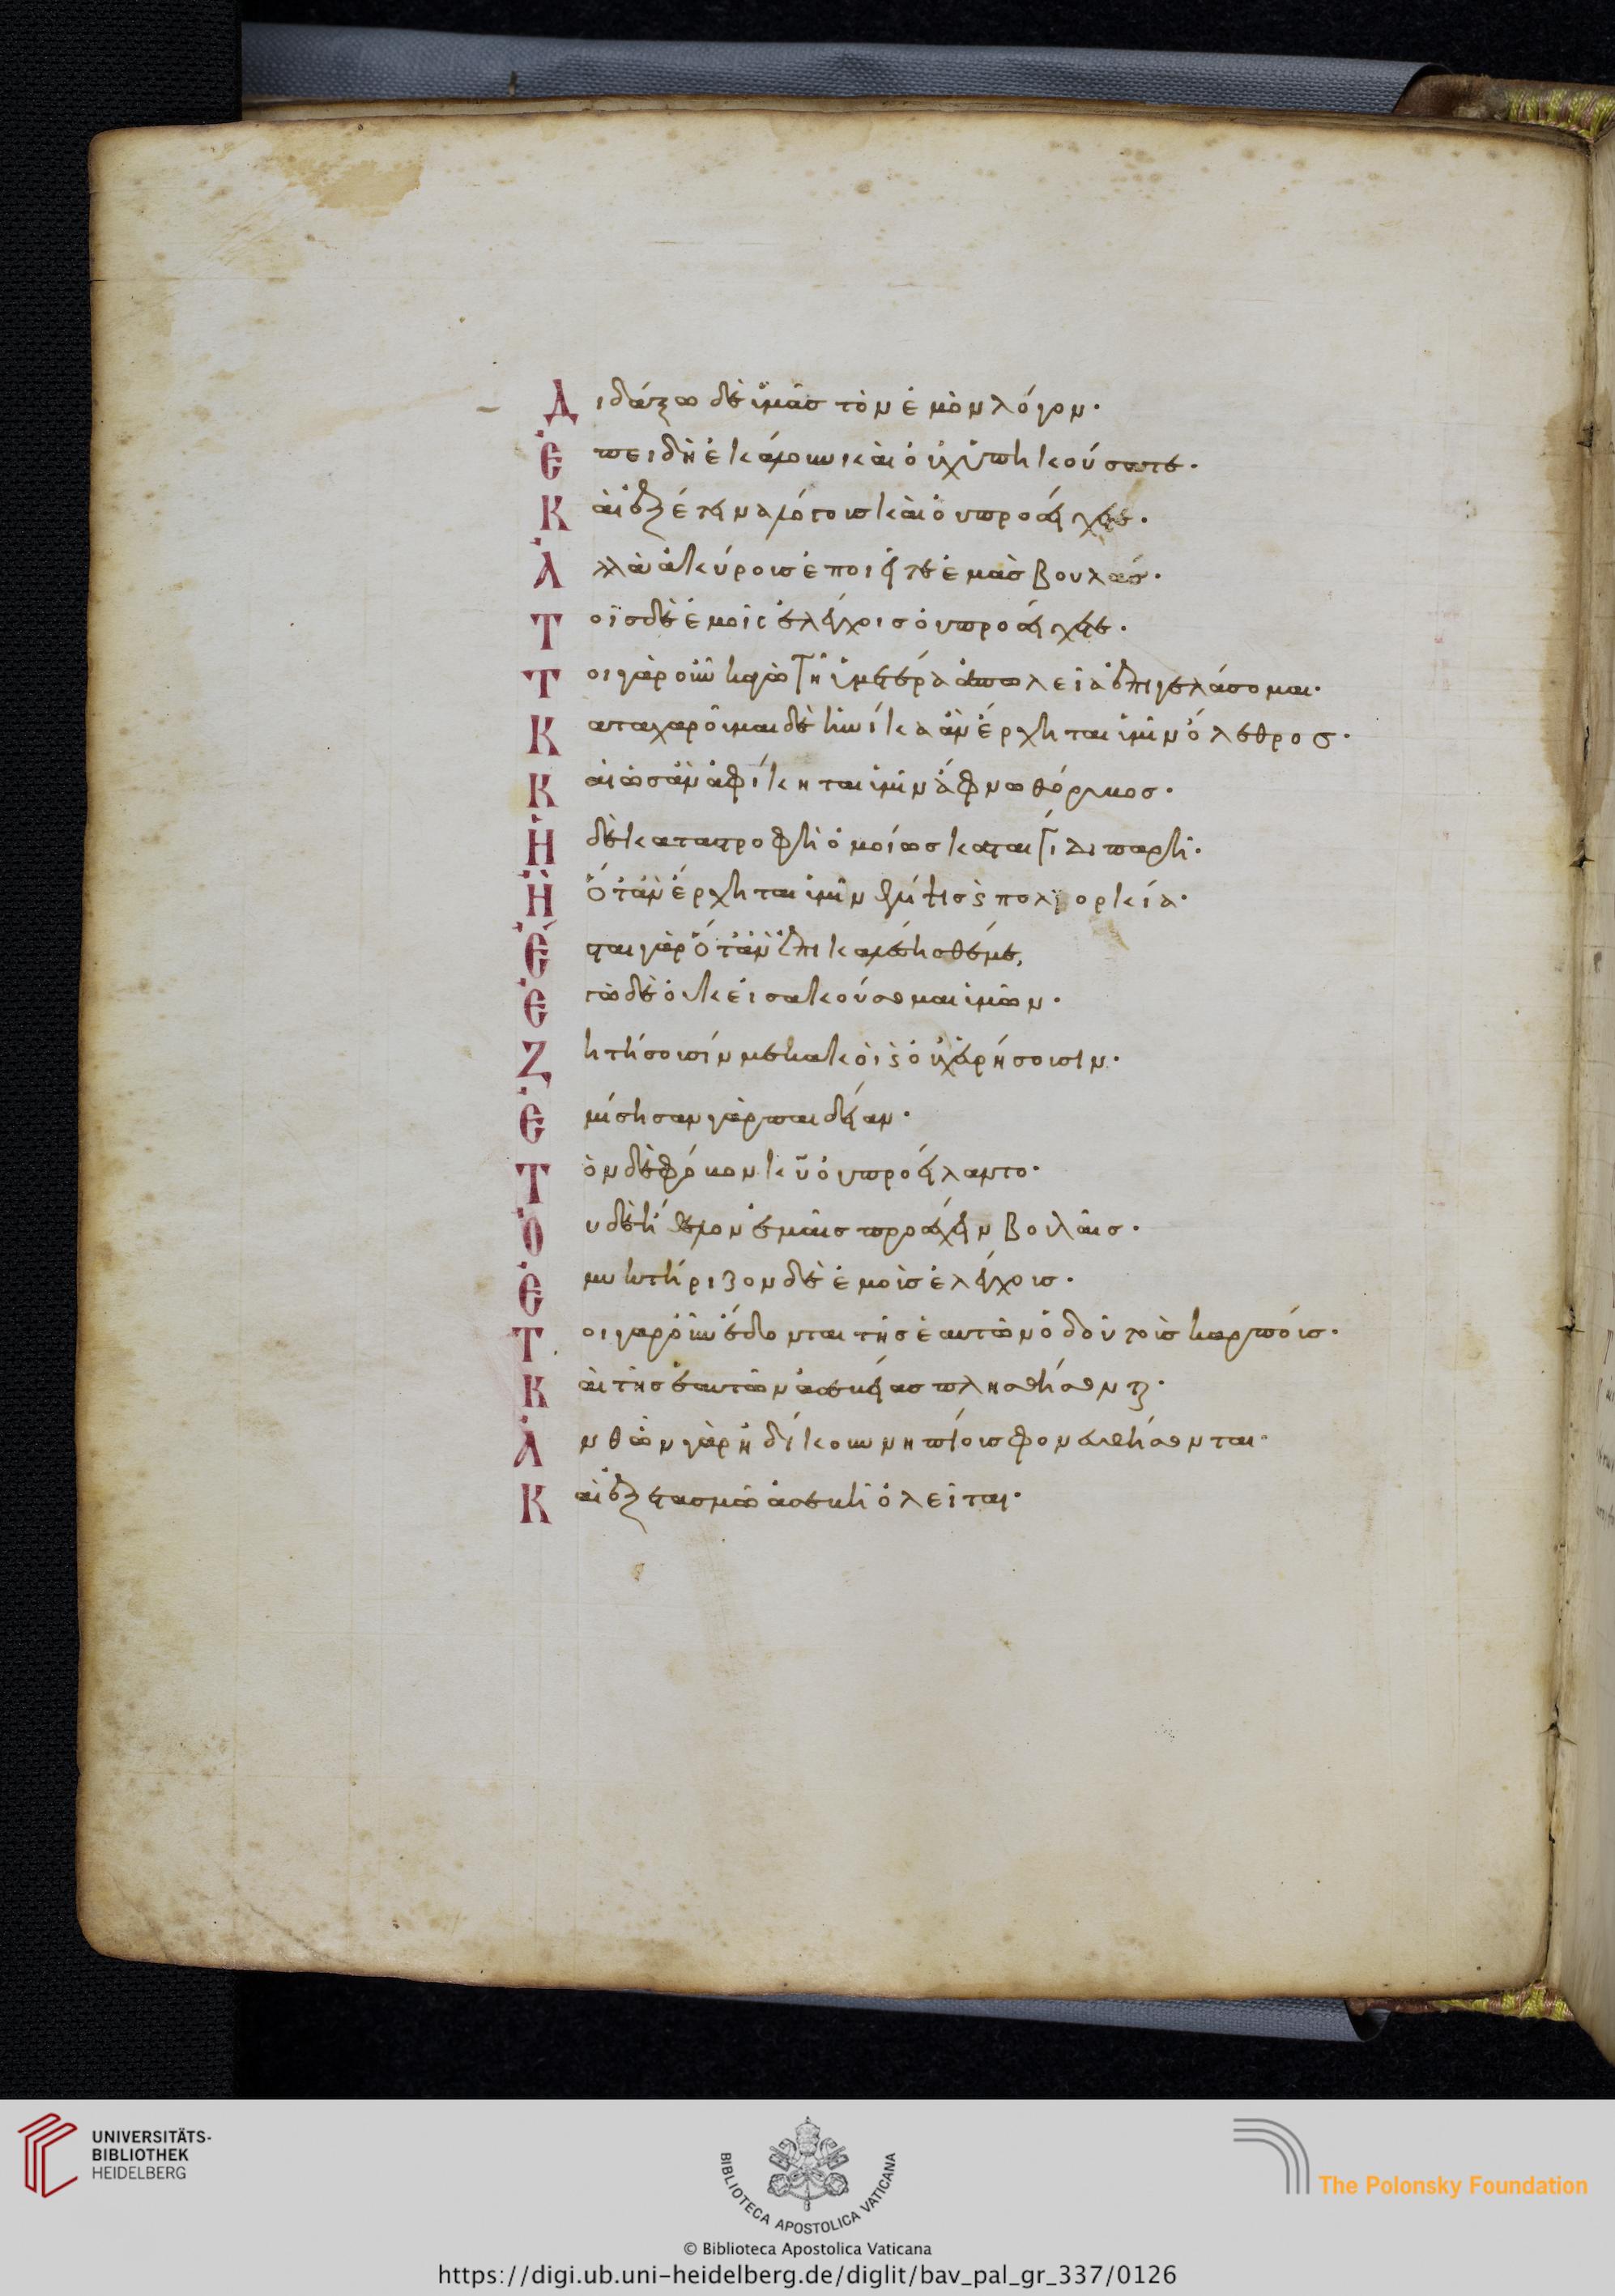 Διδάξω δὲ ὑμᾶς τὸν ἐμὸν λόγον·
Ἐπειδὴ ἐκάλουν καὶ οὐχ ὑπηκούσατε·
Καὶ ἐξέτεινα λόγους καὶ οὐ προσείχετε·
Ἀλλὰ ἀκύρους ἐποιεῖτε ἐμὰς βουλάς·
Τοῖς δὲ ἐμοῖς ἐλέγχοις οὐ προσείχετε·
Τοιγαροῦν κἀγὼ τῆ ὑμετέρα ἀπωλεία ἐπιγελάσομαι·
Καταχαροῦμαι δὲ ἡνίκα ἂν ἔρχηται ὑμῖν ὄλεθρος·
Καὶ ὡς ἂν ἀφίκηται ὑμῖν ἄφνω θόρυβος·
Ἡ δὲ καταστροφὴ ὁμοίως καταιγίδι παρῆ·
Ἢ ὅταν ἔρχηται ὑμῖν θλίψις καὶ πολιορκία·
Ἔσται γὰρ ὅταν ἐπικαλέσησθέ με,
Ἐγὼ δὲ οὐκ εἰσακούσομαι ὑμῶν·
Ζητήσουσίν με κακοὶ καὶ οὐχ εὑρήσουσιν·
Ἐμίσησαν γὰρ παιδείαν·
Τὸν δὲ φόβον κυ οὐ προείλαντο·
Οὐδὲ ἤθελον ἐμαῖς προσέχειν βουλαῖς·
Ἐμυκτήριζον δὲ ἐμοὺς ἐλέγχους·
Τοιγαροῦν ἔδονται τῆς ἑαυτῶν ὁδοῦ τοὺς καρποὺς·
Καὶ τῆς ἑαυτῶν ἀσεβείας πλησθήσονται·
Ἀνθ ὧν γὰρ ἠδίκουν νηπίους φονευθήσονται·
Καὶ ἐξετασμῶ ἀσεβὴ ὀλεῖται·
UNIVERSITÄTS-
BIBLIOTHEK
HEIDELBERG
BIBLIOTECA APOSTOLICA VATICANA
The Polonsky Foundation
© Biblioteca Apostolica Vaticana
https://digi.ub.uni-heidelberg.de/diglit/bav_pal_gr_337/0126